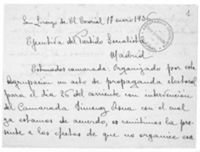 1
San Lorenzo de El Escorial 17 enero 1936
Ejecutiva del Partido Socialista
Madrid
Estimados camaradas: Organizado por esta
Agrupacion un acto de propaganda electoral
para el dia 26 del corriente con intervencion
del Camarada Jimenez Asua con el cual
ya estamos de acuerdo, os remitimos la pre-
sente a los efectos de que no organice esa